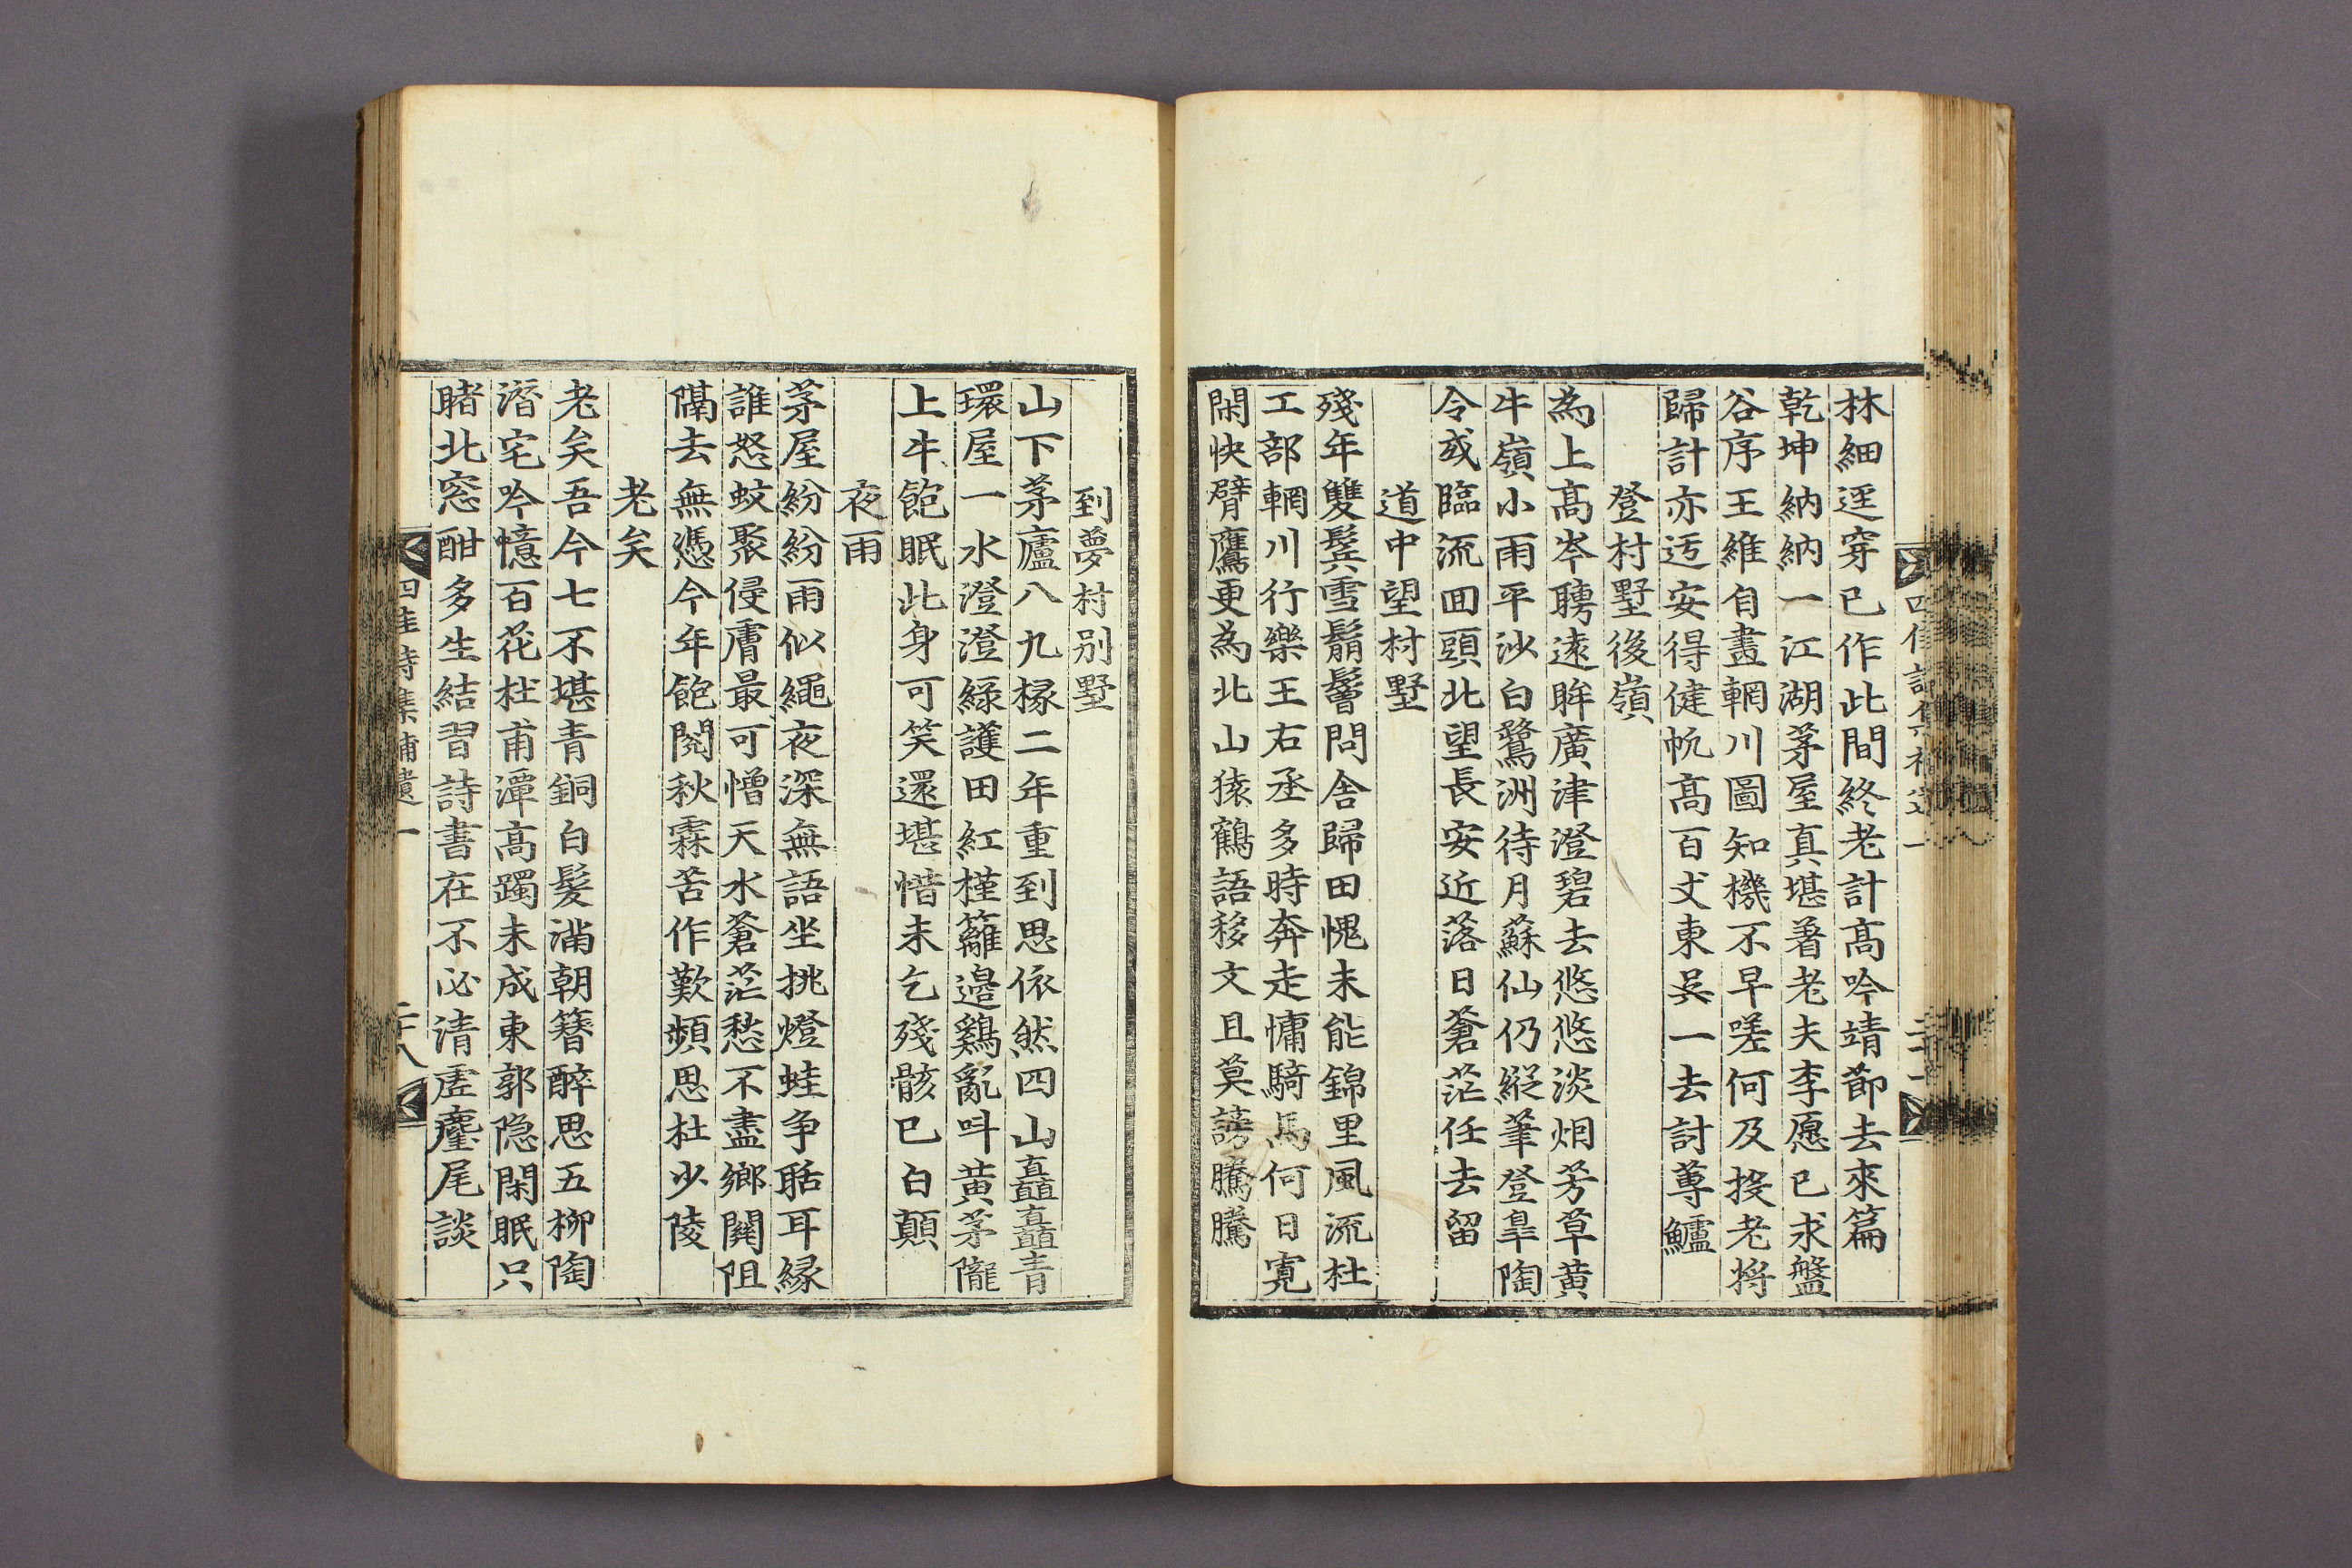 林細逕穿已作此間終老計高吟靖節去來篇
乾坤納納一江湖茅屋真堪着老夫李愿已求盤
谷序王維自畫輞川圖知機不早嗟何及投老将
歸計亦迃安得健帆高百丈東吳一去討蓴鱸
登村墅後嶺
為上高岑騁遠眸廣津澄碧去悠悠淡烟芳草黄
牛嶺小雨平沙白鷺洲待月蘇仙仍縱筆登皐陶
令或臨流回頭北望長安近落日蒼茫任去留
道中望村墅
殘年雙鬓雪鬅鬙問舍歸田愧未能錦里風流杜
工部輞川行樂王右丞多時奔走慵騎馬何日寛
閑快臂鷹更為北山猿鶴語移文且莫謗騰騰
到夢村别墅
山下茅廬八九椽二年重到思依然四山矗矗青
環屋一水澄澄綠護田紅槿籬邉鷄亂呌黄茅隴
上牛飽眠此身可笑還堪惜未乞殘骸已白顛
夜雨
茅屋紛紛雨似繩夜深無語坐挑燈蛙争聒耳縁
誰怒蚊聚侵膚最可憎天水蒼茫愁不盡鄉關阻
隔去無憑今年飽閱秋霖苦作歎頻思杜少陵
老矣
老矣吾今七不堪青銅白髮滿朝簪醉思五柳陶
潛宅吟憶百花杜甫潭高躅未成東郭隐閑眠只
睹北窓酣多生結習詩書在不必清虛麈尾談
四佳詩集補遺一
二十八